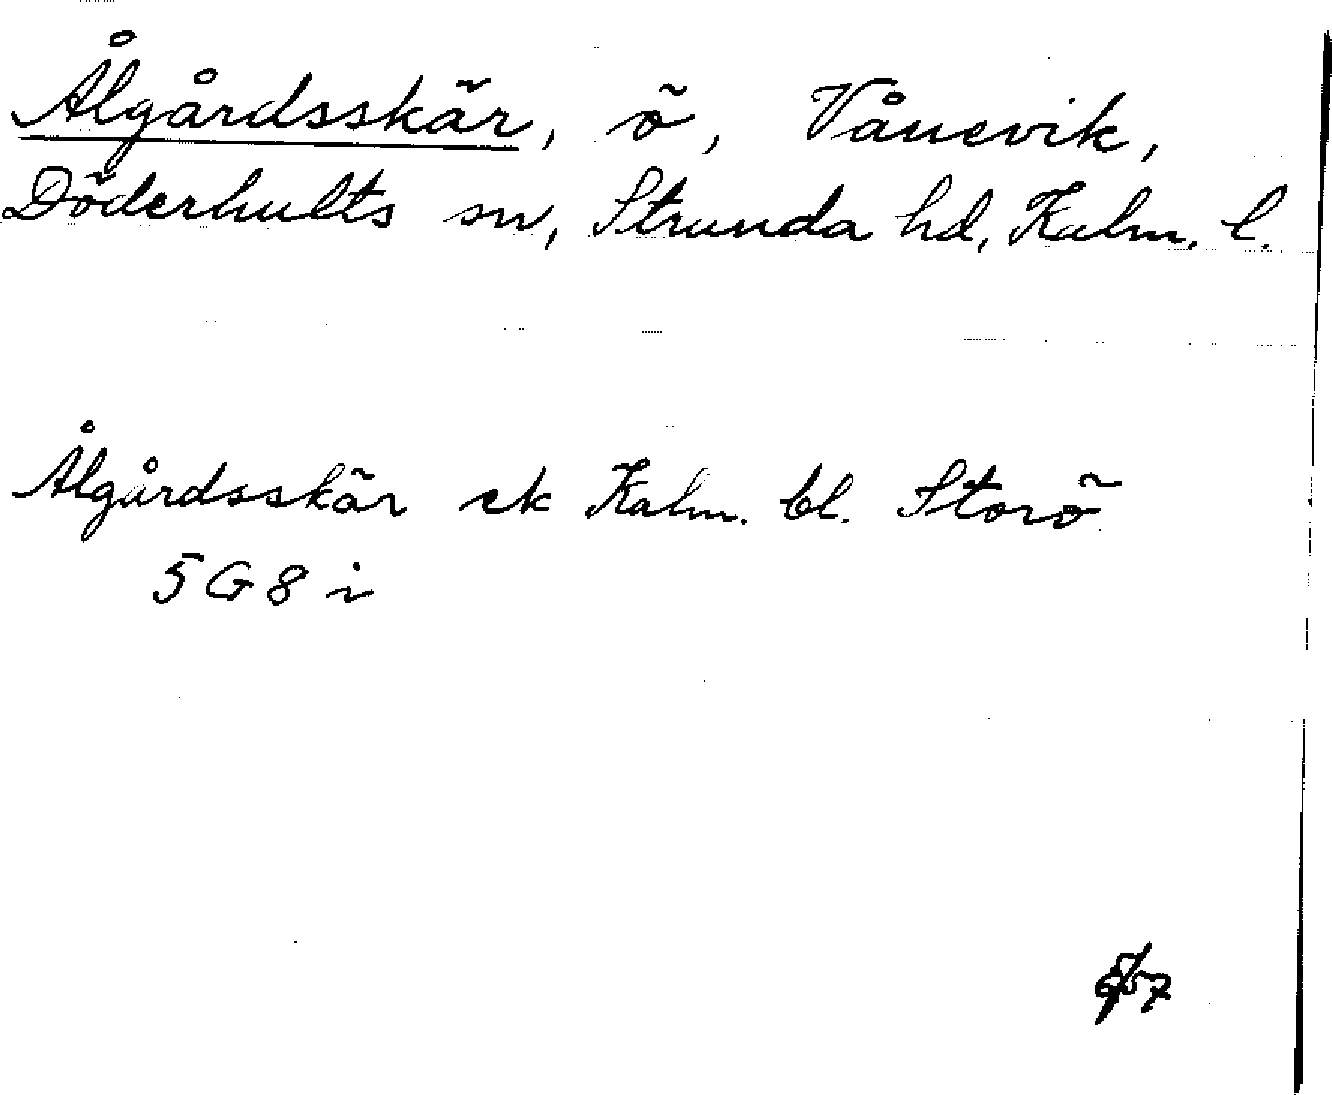 Ålgårdsskär, ö, Vånevik,
Döderhults sn, Stranda hd, Kalm. l.
Ålgårdsskär ek Kalm. bl. Storö
5 G 8 i